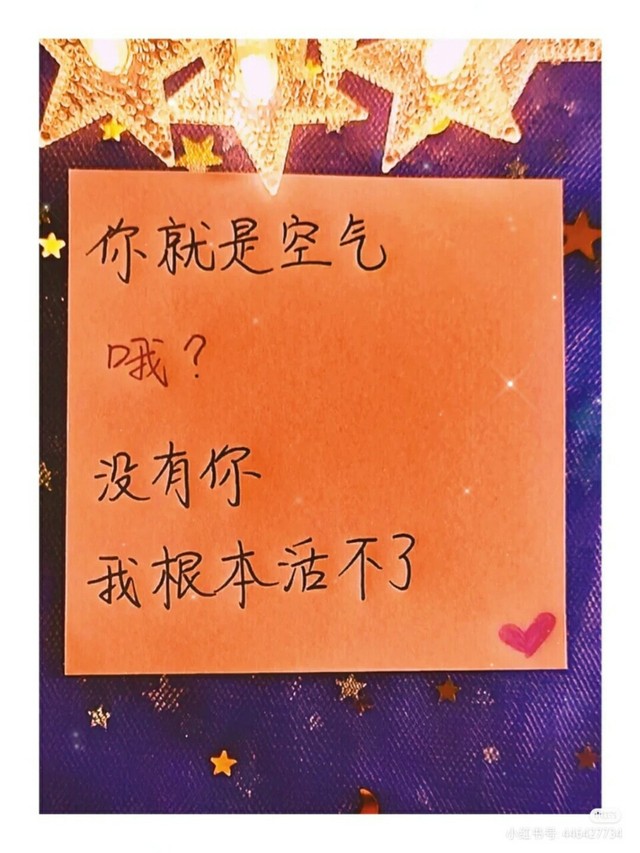 你就是空气
哦？
没有你
我根本活不了
小红书号: 448427734